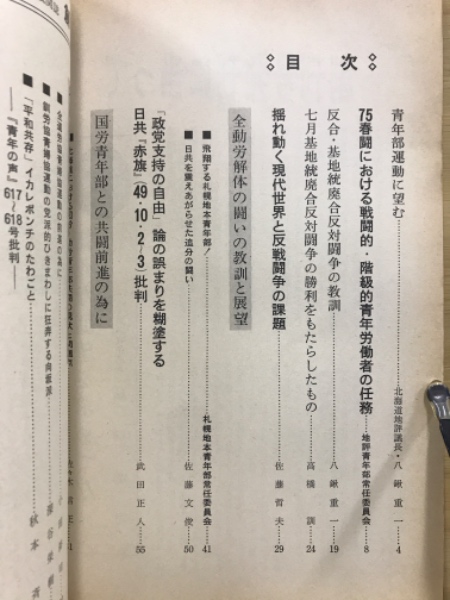 目次
青年部運動に望む……北海道地評議長・八鍬重一…4
75春闘における戦闘的・階級的青年労働者の任務……地評青年部常任委員会…8
反合・基地統廃合反対闘争の教訓……八鍬重一…19
七月基地統廃合反対闘争の勝利をもたらしたもの……高橋訓…24
揺れ動く現代世界と反戦闘争の課題……佐藤哲夫…29
全動労解体の闘いの教訓と展望
■飛翔する札幌地本青年部!……札幌地本青年部常任委員会…41
■日共を震えあがらせた追分の闘い……佐藤文俊…50
「政党支持の自由」論の誤まりを糊塗する
日共『赤旗』(49・10・2〜3)批判……武田正人…55
国労青年部との共闘前進の為に
■
■全運労協青婦協運動の前進の為に
■釧労協青婦協運動の党派的ひきまわしに狂奔する向坂派
■「平和共存」イカレポンチのたわごと
――『青年の声』617〜618号批判――